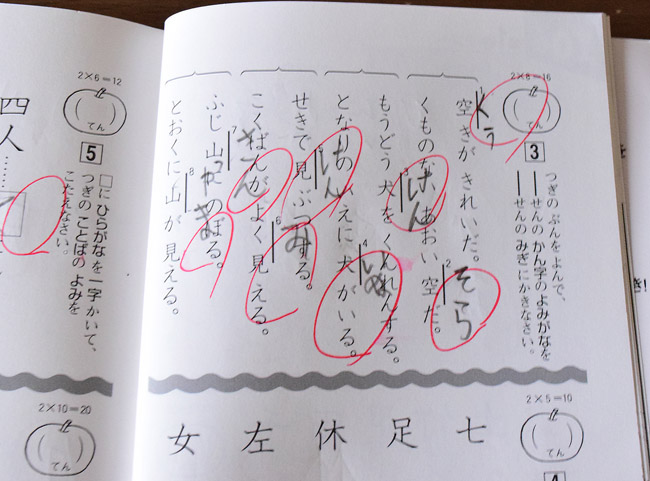 2×8=16
てん
3
つぎの ぶんを よんで、
――せんの かん字の よみがなを
――せんの みぎに かきなさい。
空きが きれいだ。
くう
くものない あおい 空だ。
2
そら
もうどう犬を くんれんする。
3
けん
となりの いえに 犬が いる。
4
いぬ
せきで 見ぶつする。
けん
こくばんが よく 見える。
6
み
ふじ山に のぼる。
7
さん
とおくに 山が 見える。
8
やま
2×5=10
てん
4
七
足
休
左
女
2×6=12
てん
5
□に ひらがなを 一字 かいて、
つぎの ことばの よみを
こたえなさい。
四人……
2×10=20
てん